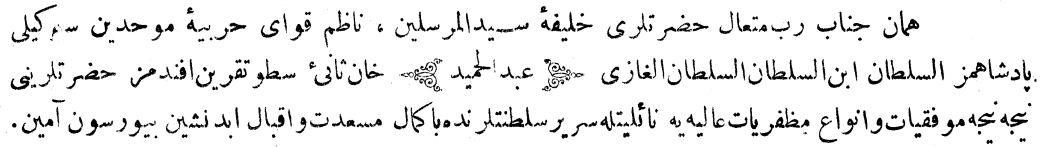 همان جناب رب متعال حضرتلری خلیفهٔ سید المرسلین ، ناظم قوای حربیهٔ موحدین سوکیلی
پادشاهمز السلطان ابن السلطان السلطان الغازی عبد الحمید خان ثانیٔ سطوتقرین افندمز حضرتلرینی
نیجه نیجه موفقیات و انواع مظفریات عالیه یه نائلیتله سریر سلطنتلرنده باکمال مسعدت و اقبال ابدنشین بیورسون آمین.